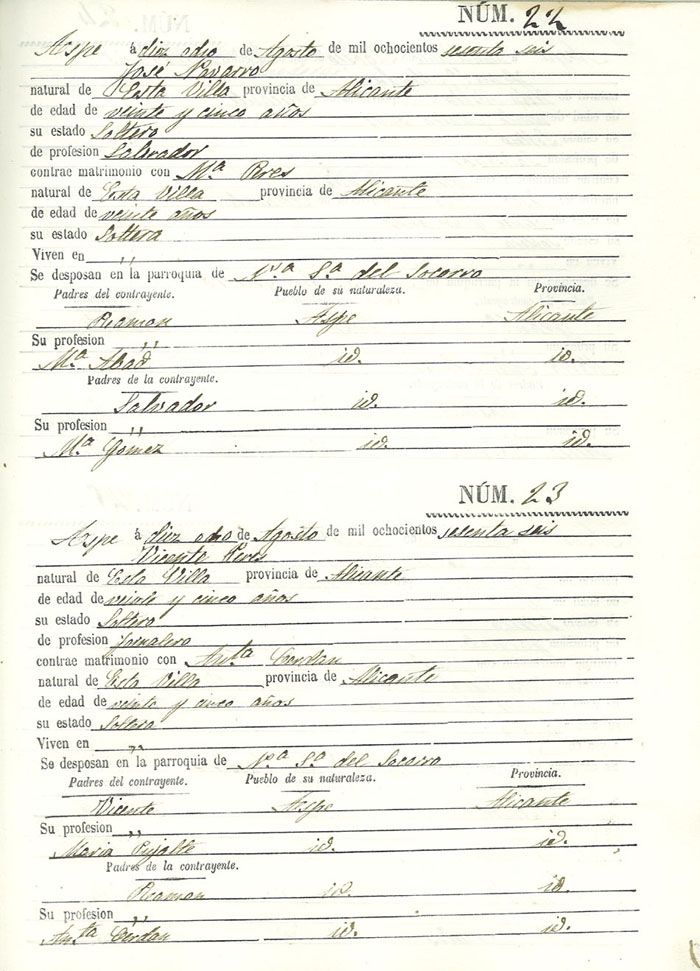 NÚM. 22
Aspe á diez ocho de Agosto de mil ochocientos sesenta seis
José Navarro
natural de Esta Villa provincia de Alicante
de edad de veinte y cinco años
su estado Soltero
de profesion Labrador
contrae matrimonio con Mª Pres
natural de Esta Villa provincia de Alicante
de edad de veinte años
su estado Soltera
Viven en ,,
Se desposan en la parroquia de Nª Sª del Socorro
Padres del contrayente. Pueblo de su naturaleza. Provincia.
Ramon Aspe Alicante
Su profesion ,,
Mª Abad id. id.
Padres de la contrayente.
Salvador id. id.
Su profesion ,,
Mª Gómez id. id.
NÚM. 23
Aspe á diez ocho de Agosto de mil ochocientos sesenta seis
Vicente Peres
natural de Esta Villa provincia de Alicante
de edad de veinte y cinco años
su estado Soltero
de profesion Jornalero
contrae matrimonio con Anta Cerdan
natural de Esta Villa provincia de Alicante
de edad de veinte y cinco años
su estado Soltera
Viven en ,,
Se desposan en la parroquia de Nª Sª del Socorro
Padres del contrayente. Pueblo de su naturaleza. Provincia.
Vicente Aspe Alicante
Su profesion ,,
Maria Pujalte id. id.
Padres de la contrayente.
Ramon id. id.
Su profesion ,,
Anta Cerdan id. id.